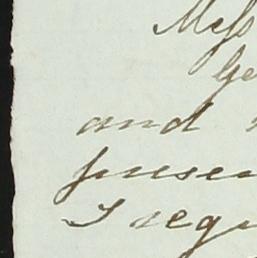 Mess
Ge
and
presen
I requ